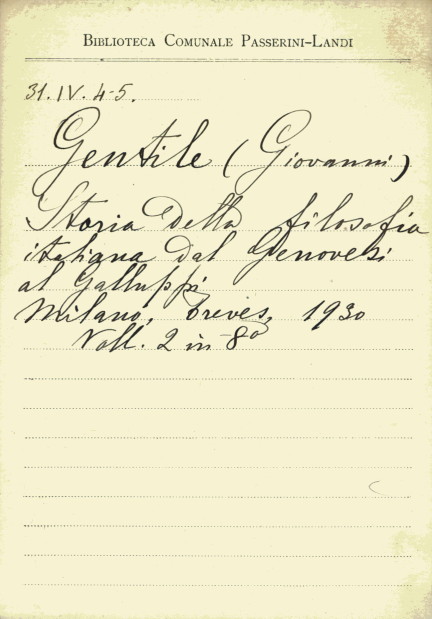 BIBLIOTECA COMUNALE PASSERINI-LANDI
31.IV.4-5.
Gentile (Giovanni)
Storia della filosofia
italiana dal Genovesi
al Galluppi
Milano, Treves, 1930
Voll. 2 in-8º